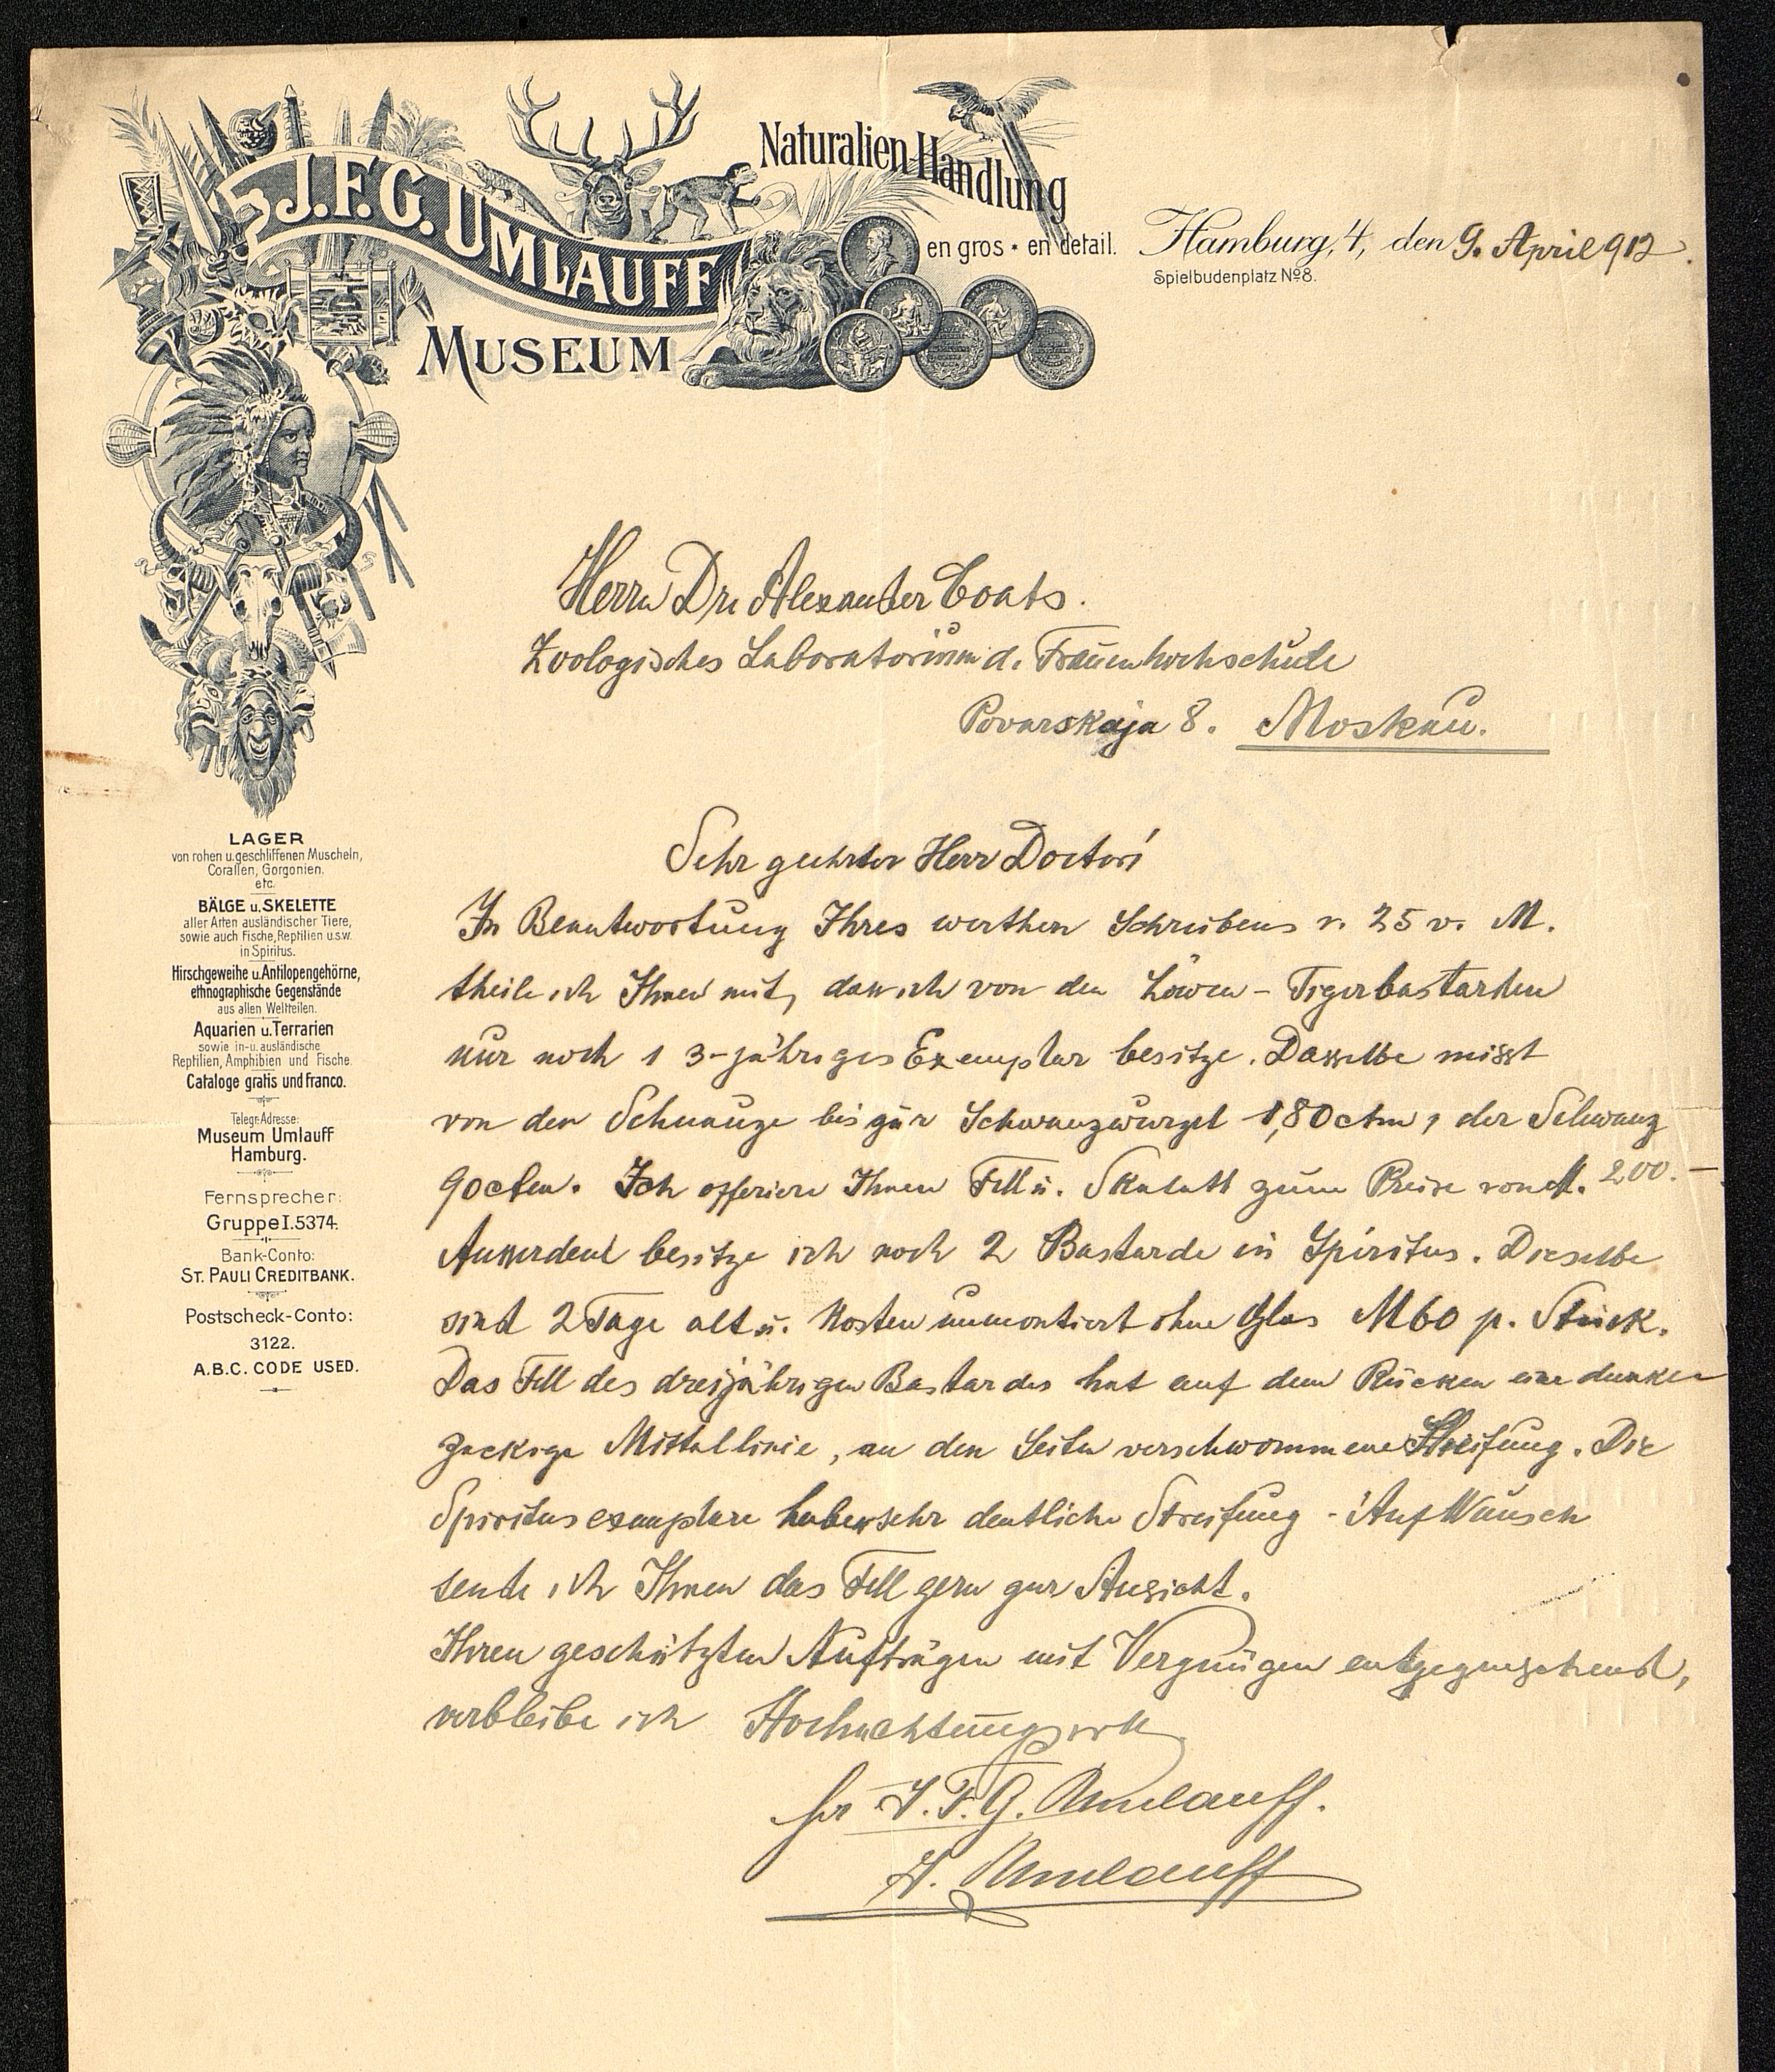 J.F.G. UMLAUFF
MUSEUM
Naturalien-Handlung
en gros • en détail.
Hamburg, 4, den 9. April 912.
Spielbudenplatz No 8.
Herrn Dr. Alexander Coats.
Zoologisches Laboratorium d. Frauenhochschule
Povarskaja 8. Moskau.
LAGER
von rohen u. geschliffenen Muscheln,
Corallen, Gorgonien.
etc.
BÄLGE u. SKELETTE
aller Arten ausländischer Tiere,
sowie auch Fische, Reptilien u.s.w.
in Spiritus.
Hirschgeweihe u. Antilopengehörne,
ethnographische Gegenstände
aus allen Weltteilen.
Aquarien u. Terrarien
sowie in- u. ausländische
Reptilien, Amphibien und Fische.
Cataloge gratis und franco.
Telegr.-Adresse:
Museum Umlauff
Hamburg.
Fernsprecher:
Gruppe I. 5374.
Bank-Conto:
ST. PAULI CREDITBANK.
Postscheck-Conto:
3122.
A.B.C. CODE USED.
Sehr geehrter Herr Doctor!
In Beantwortung Ihres werthen Schreibens v. 25 v. M.
theile ich Ihnen mit, dass ich von den Löwen-Tigerbastarden
nur noch 1 3-jähriges Exemplar besitze. Dasselbe misst
von der Schnauze bis zur Schwanzwurzel 1,80 ctm, der Schwanz
90 ctm. Ich offeriere Ihnen Fell u. Skelett zum Preise von M. 200.—
Ausserdem besitze ich noch 2 Bastarde in Spiritus. Dieselbe
sind 2 Tage alt u. kosten unmontiert ohne Glas M 60 p. Stück.
Das Fell des dreijährigen Bastardes hat auf dem Rücken eine dunkle
zackige Mittellinie, an den Seiten verschwommene Streifung. Die
Spiritusexemplare haben sehr deutliche Streifung - Auf Wunsch
sende ich Ihnen das Fell gern zur Ansicht.
Ihren geschätzten Aufträgen mit Vergnügen entgegensehend,
verbleibe ich Hochachtungsvoll
J. F. G. Umlauff.
Umlauff